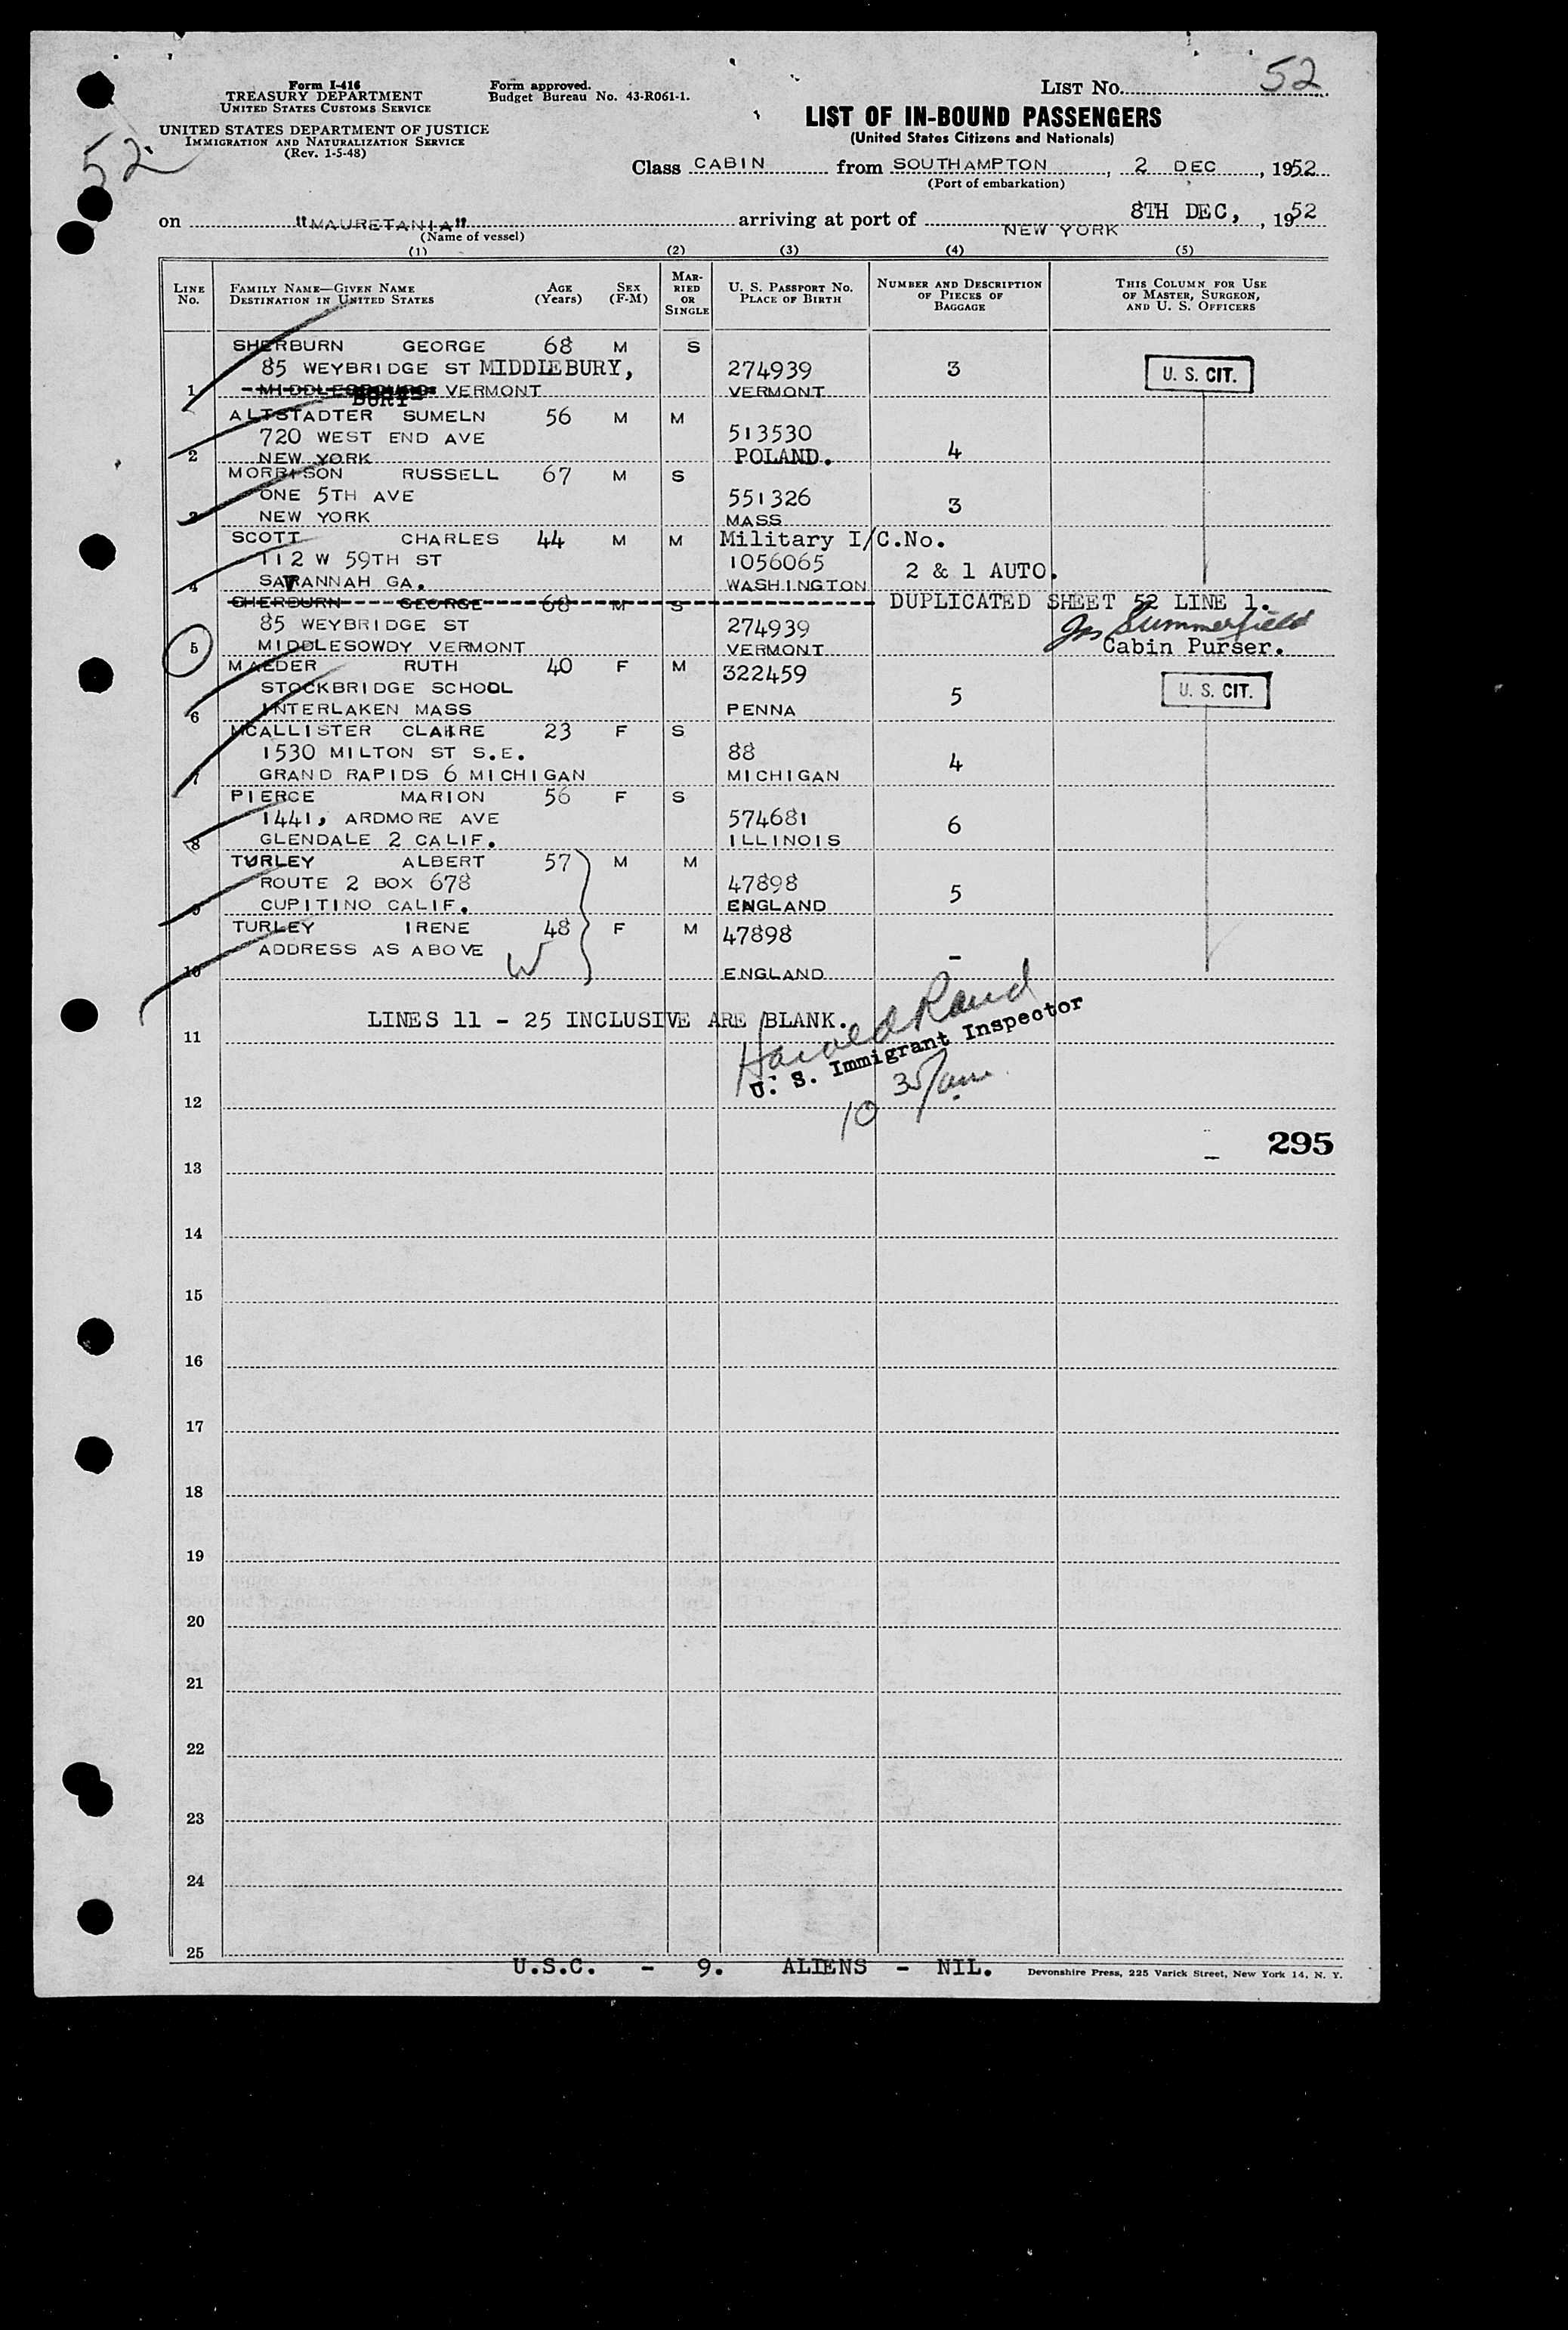 Form I-416
TREASURY DEPARTMENT
UNITED STATES CUSTOMS SERVICE
Form approved.
Budget Bureau No. 43-R061-1.
LIST NO. 52
UNITED STATES DEPARTMENT OF JUSTICE
IMMIGRATION AND NATURALIZATION SERVICE
(Rev. 1-5-48)
52
LIST OF IN-BOUND PASSENGERS
(United States Citizens and Nationals)
Class CABIN from SOUTHAMPTON, 2 DEC, 1952
(Port of embarkation)
on "MAURETANIA" arriving at port of NEW YORK 8TH DEC, 1952
(Name of vessel)
(1) (2) (3) (4) (5)
LINE No. FAMILY NAME—GIVEN NAME DESTINATION IN UNITED STATES AGE (Years) SEX (F-M) MARRIED OR SINGLE U. S. PASSPORT NO. PLACE OF BIRTH NUMBER AND DESCRIPTION OF PIECES OF BAGGAGE THIS COLUMN FOR USE OF MASTER, SURGEON, AND U. S. OFFICERS
SHERBURN GEORGE 68 M S
85 WEYBRIDGE ST MIDDLEBURY, 274939 3 U. S. CIT.
1 VERMONT VERMONT
BURY
ALTSTADTER SUMELN 56 M M
720 WEST END AVE 513530
2 NEW YORK POLAND. 4
MORRISON RUSSELL 67 M S
ONE 5TH AVE 551326 3
3 NEW YORK MASS
SCOTT CHARLES 44 M M Military I/C.No.
112 W 59TH ST 1056065 2 & 1 AUTO.
4 SAVANNAH GA. WASHINGTON
SHERBURN GEORGE 68 M S DUPLICATED SHEET 52 LINE 1.
85 WEYBRIDGE ST 274939 Jas Summerfield
5 MIDDLESOWDY VERMONT VERMONT Cabin Purser.
MAEDER RUTH 40 F M 322459
STOCKBRIDGE SCHOOL 5 U. S. CIT.
6 INTERLAKEN MASS PENNA
MCALLISTER CLAIRE 23 F S
1530 MILTON ST S.E. 88 4
7 GRAND RAPIDS 6 MICHIGAN MICHIGAN
PIERCE MARION 56 F S
1441, ARDMORE AVE 574681 6
8 GLENDALE 2 CALIF. ILLINOIS
TURLEY ALBERT 57 M M
ROUTE 2 BOX 678 47898 5
9 CUPITINO CALIF. ENGLAND
TURLEY IRENE 48 F M 47898
ADDRESS AS ABOVE W -
10 ENGLAND
LINES 11 - 25 INCLUSIVE ARE BLANK.
Harold Rand
U. S. Immigrant Inspector
10 35/am
11
12
295
13
14
15
16
17
18
19
20
21
22
23
24
25
U.S.C. - 9. ALIENS - NIL.
Devonshire Press, 225 Varick Street, New York 14, N. Y.